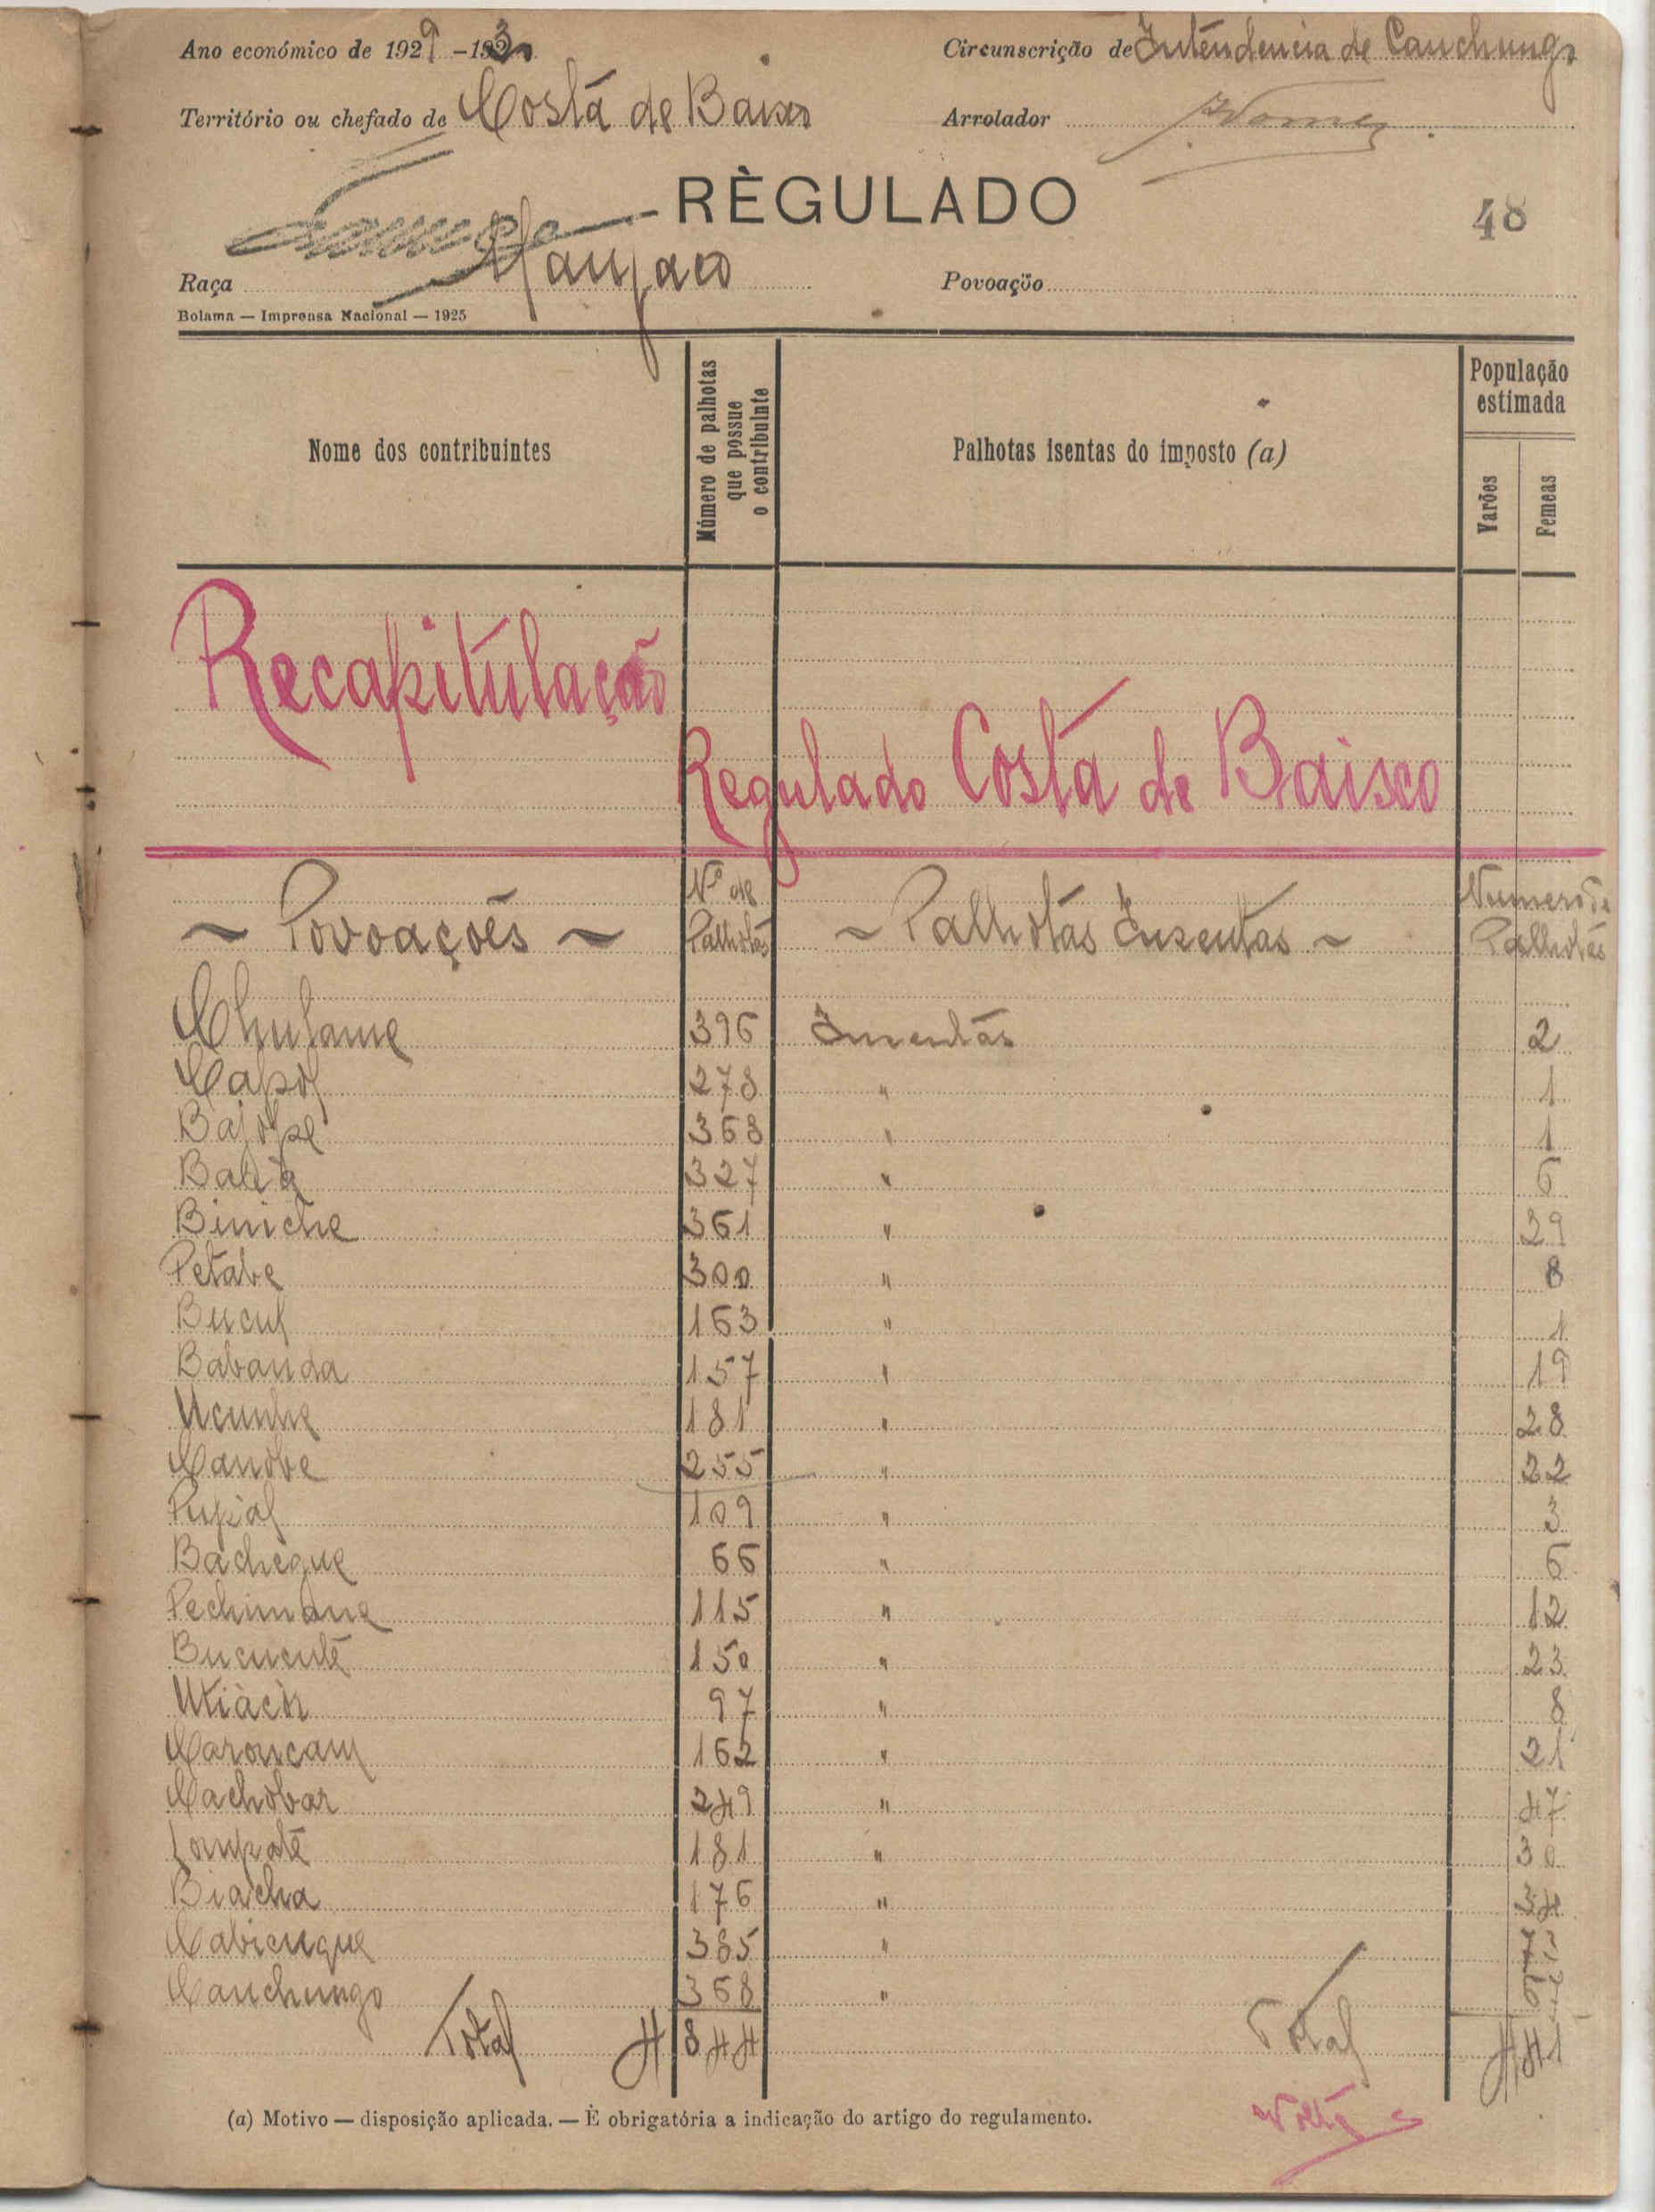 Ano económico de 1929 -1930 Circunscrição de Intendencia de Canchungo
Território ou chefado de Costa de Baixo Arrolador
RÈGULADO
48
Raça Manjaco Povoação
Bolama — Imprensa Nacional — 1925
Nome dos contribuintes
Número de palhotas que possue o contribuinte
Palhotas isentas do imposto (a)
População estimada
Varões
Femeas
Recapitulação
Regulado Costa de Baixo
~ Povoações ~ Nº de Palhotas ~ Palhotas Inzentas ~ Numero de Palhotas
Chulame 396 Inzentas 2
Capol 278 " 1
Bajope 368 " 1
Balia 327 " 6
Biniche 361 " 39
Petabe 300 " 8
Bucul 163 " 1
Babanda 157 " 19
Ucunhe 181 " 28
Canobe 255 " 22
Pupial 109 " 3
Bachèque 66 " 6
Pechimane 115 " 12
Bucucute 150 " 23
Utiàcòr 97 " 8
Caroncam 162 " 21
Cachobar 249 " 47
181 " 30
Biacha 176 " 34
Cabienque 385 "
Canchungo 368 "
Total 4844 Total 441
(a) Motivo — disposição aplicada. — È obrigatória a indicação do artigo do regulamento.
Volte